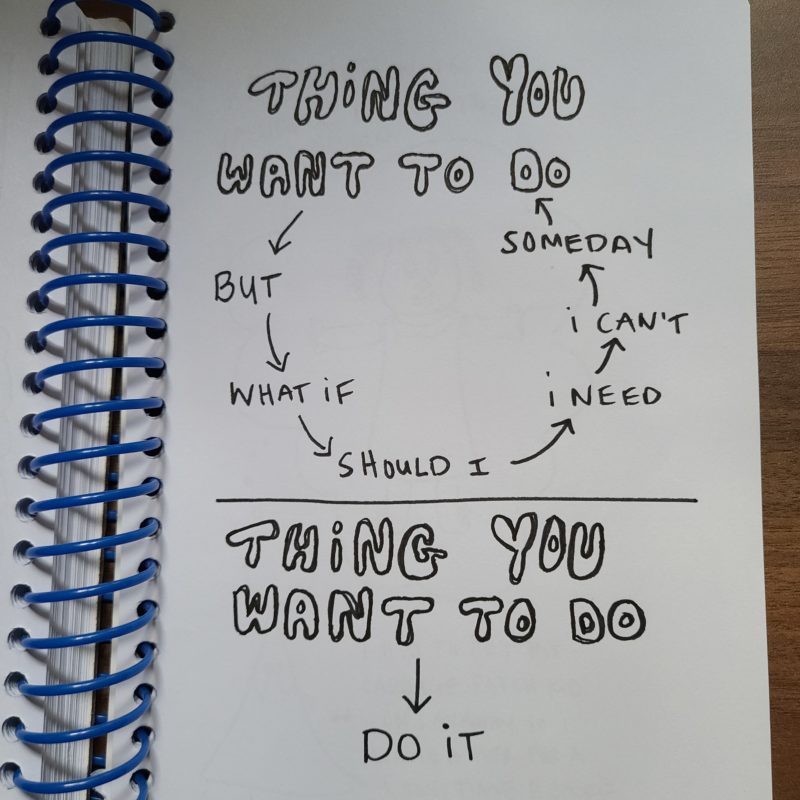 THiNG YOU
WANT TO DO
BUT
WHAT iF
SHOULD I
i NEED
i CAN'T
SOMEDAY
THiNG YOU
WANT TO DO
DO iT